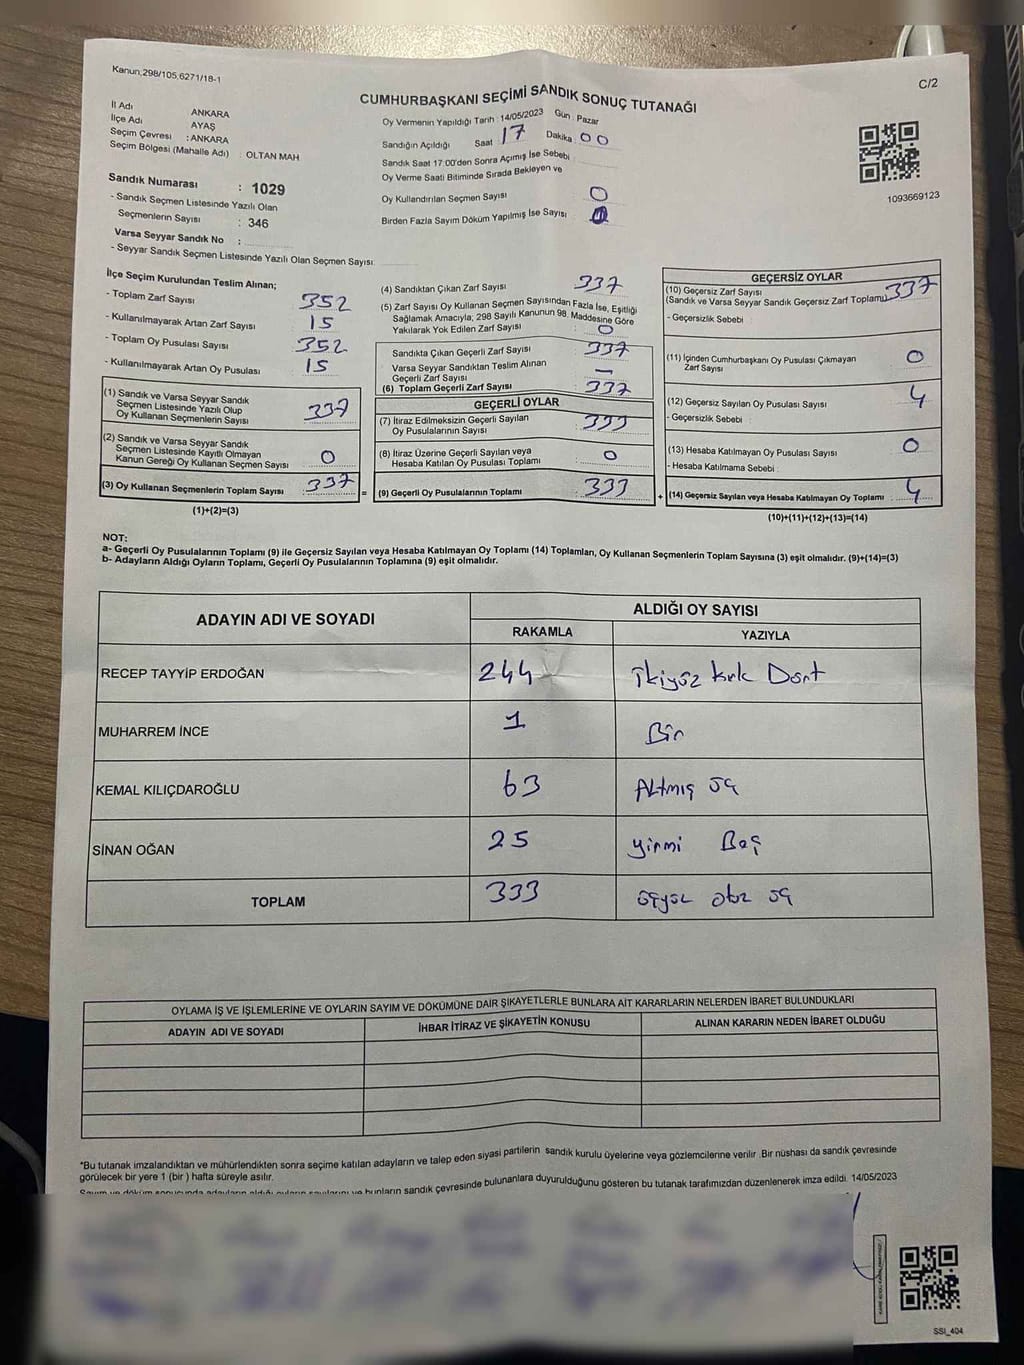 Kanun,298/105,6271/18-1
C/2
CUMHURBAŞKANI SEÇİMİ SANDIK SONUÇ TUTANAĞI
İl Adı ANKARA
İlçe Adı AYAŞ
Seçim Çevresi : ANKARA
Seçim Bölgesi (Mahalle Adı) : OLTAN MAH
Sandık Numarası : 1029
- Sandık Seçmen Listesinde Yazılı Olan
Seçmenlerin Sayısı : 346
Varsa Seyyar Sandık No :
- Seyyar Sandık Seçmen Listesinde Yazılı Olan Seçmen Sayısı:
Oy Vermenin Yapıldığı Tarih : 14/05/2023 Gün : Pazar
Sandığın Açıldığı Saat 17 Dakika 00
Sandık Saat 17:00'den Sonra Açımış İse Sebebi
Oy Verme Saati Bitiminde Sırada Bekleyen ve
Oy Kullandırılan Seçmen Sayısı 0
Birden Fazla Sayım Döküm Yapılmış İse Sayısı
1093669123
İlçe Seçim Kurulundan Teslim Alınan;
- Toplam Zarf Sayısı 352
- Kullanılmayarak Artan Zarf Sayısı 15
- Toplam Oy Pusulası Sayısı 352
- Kullanılmayarak Artan Oy Pusulası 15
(1) Sandık ve Varsa Seyyar Sandık
Seçmen Listesinde Yazılı Olup
Oy Kullanan Seçmenlerin Sayısı 337
(2) Sandık ve Varsa Seyyar Sandık
Seçmen Listesinde Kayıtlı Olmayan
Kanun Gereği Oy Kullanan Seçmen Sayısı 0
(3) Oy Kullanan Seçmenlerin Toplam Sayısı : 337
(1)+(2)=(3)
(4) Sandıktan Çıkan Zarf Sayısı 337
(5) Zarf Sayısı Oy Kullanan Seçmen Sayısından Fazla İse, Eşitliği
Sağlamak Amacıyla; 298 Sayılı Kanunun 98. Maddesine Göre
Yakılarak Yok Edilen Zarf Sayısı : 0
Sandıkta Çıkan Geçerli Zarf Sayısı 337
Varsa Seyyar Sandıktan Teslim Alınan
Geçerli Zarf Sayısı : —
(6) Toplam Geçerli Zarf Sayısı : 337
GEÇERLİ OYLAR
(7) İtiraz Edilmeksizin Geçerli Sayılan
Oy Pusulalarının Sayısı 333
(8) İtiraz Üzerine Geçerli Sayılan veya
Hesaba Katılan Oy Pusulası Toplamı : 0
= (9) Geçerli Oy Pusulalarının Toplamı : 333
GEÇERSİZ OYLAR
(10) Geçersiz Zarf Sayısı
(Sandık ve Varsa Seyyar Sandık Geçersiz Zarf Toplamı) 337
- Geçersizlik Sebebi :
(11) İçinden Cumhurbaşkanı Oy Pusulası Çıkmayan
Zarf Sayısı 0
(12) Geçersiz Sayılan Oy Pusulası Sayısı 4
- Geçersizlik Sebebi :
(13) Hesaba Katılmayan Oy Pusulası Sayısı 0
- Hesaba Katılmama Sebebi :
+ (14) Geçersiz Sayılan veya Hesaba Katılmayan Oy Toplamı : 4
(10)+(11)+(12)+(13)=(14)
NOT:
a- Geçerli Oy Pusulalarının Toplamı (9) ile Geçersiz Sayılan veya Hesaba Katılmayan Oy Toplamı (14) Toplamları, Oy Kullanan Seçmenlerin Toplam Sayısına (3) eşit olmalıdır. (9)+(14)=(3)
b- Adayların Aldığı Oyların Toplamı, Geçerli Oy Pusulalarının Toplamına (9) eşit olmalıdır.
ADAYIN ADI VE SOYADI ALDIĞI OY SAYISI
RAKAMLA YAZIYLA
RECEP TAYYİP ERDOĞAN 244 ikiyüz kırk Dört
MUHARREM İNCE 1 Bir
KEMAL KILIÇDAROĞLU 63 Altmış üç
SİNAN OĞAN 25 yirmi Beş
TOPLAM 333 üçyüz otuz üç
OYLAMA İŞ VE İŞLEMLERİNE VE OYLARIN SAYIM VE DÖKÜMÜNE DAİR ŞİKAYETLERLE BUNLARA AİT KARARLARIN NELERDEN İBARET BULUNDUKLARI
ADAYIN ADI VE SOYADI İHBAR İTİRAZ VE ŞİKAYETİN KONUSU ALINAN KARARIN NEDEN İBARET OLDUĞU
*Bu tutanak imzalandıktan ve mühürlendikten sonra seçime katılan adayların ve talep eden siyasi partilerin sandık kurulu üyelerine veya gözlemcilerine verilir .Bir nüshası da sandık çevresinde
görülecek bir yere 1 (bir ) hafta süreyle asılır.
Sayım ve döküm sonucunda adayların aldığı oyların sayılarını ve bunların sandık çevresinde bulunanlara duyurulduğunu gösteren bu tutanak tarafımızdan düzenlenerek imza edildi. 14/05/2023
SSI_404